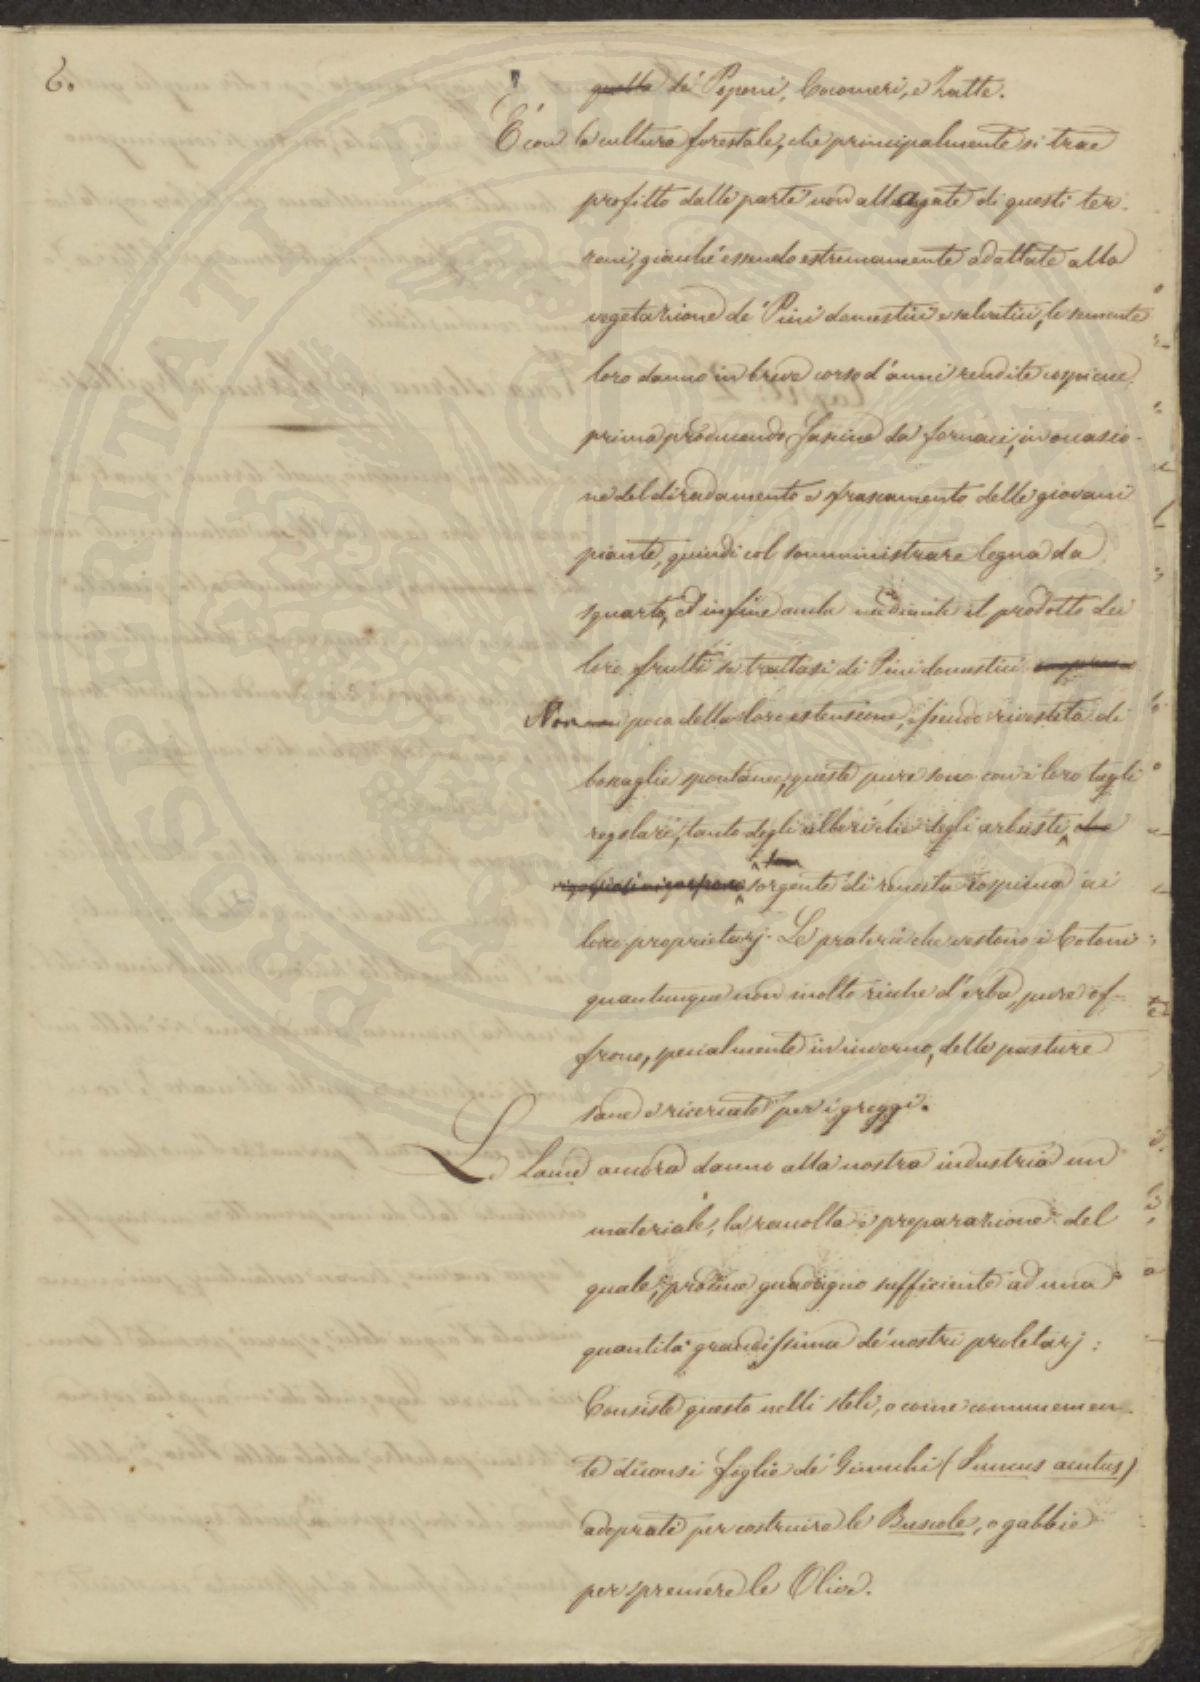 6.
quello de' Poponi, Cocomeri, e Zatte.
È con la cultura forestale, che principalmente si trae
profitto dalle parte non allagate di questi ter-
reni, giacchè essendo estremamente adattate alla
vegetazione de' Pini domestici e salvatici, le semente
loro danno in breve corso d'anni rendite cospicue
prima producendo fascine da fornaci, in occasio-
ne del diradamento e frascamento delle giovani
piante, quindi col somministrare legna da
squarto, ed infine anche mediante il prodotto dei
loro frutti se trattasi di Pini domestici
Non poca della loro estensione, essendo rivestita di
boscaglie spontanee, queste pure sono con i loro tagli
regolari, tanto degli alberi che degli arbusti, che
sorgente di rendita cospicua ai
loro proprietarj. Le praterie che vestono i Cotoni
quantunque non molto ricche d'erba, pure of-
frono, specialmente in inverno, delle pasture
sane e ricercate per i greggi.
Le Lame ancora danno alla nostra industria un
materiale, la raccolta e preparazione del
quale, produce guadagno sufficiente ad una
quantità grandissima de' nostri proletarj:
Consiste questo nelli steli, o come comunemen-
te diconsi figlie de' Giunchi (Juncus acutus)
adoprati per costruire le Buscole, o gabbie
per spremere le Olive.